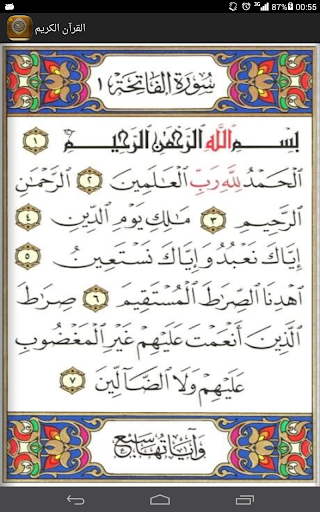 3G 00:55
القرآن الكريم
سورة الفاتحة ١
بسم الله الرحمن الرحيم ١
الحمد لله رب العلمين ٢ الرحمان
الرحيم ٣ مالك يوم الدين ٤
إياك نعبد وإياك نستعين ٥
اهدنا الصرط المستقيم ٦ صرط
الذين أنعمت عليهم غير المغضوب
عليهم ولا الضالين ٧
وآياتها سبع